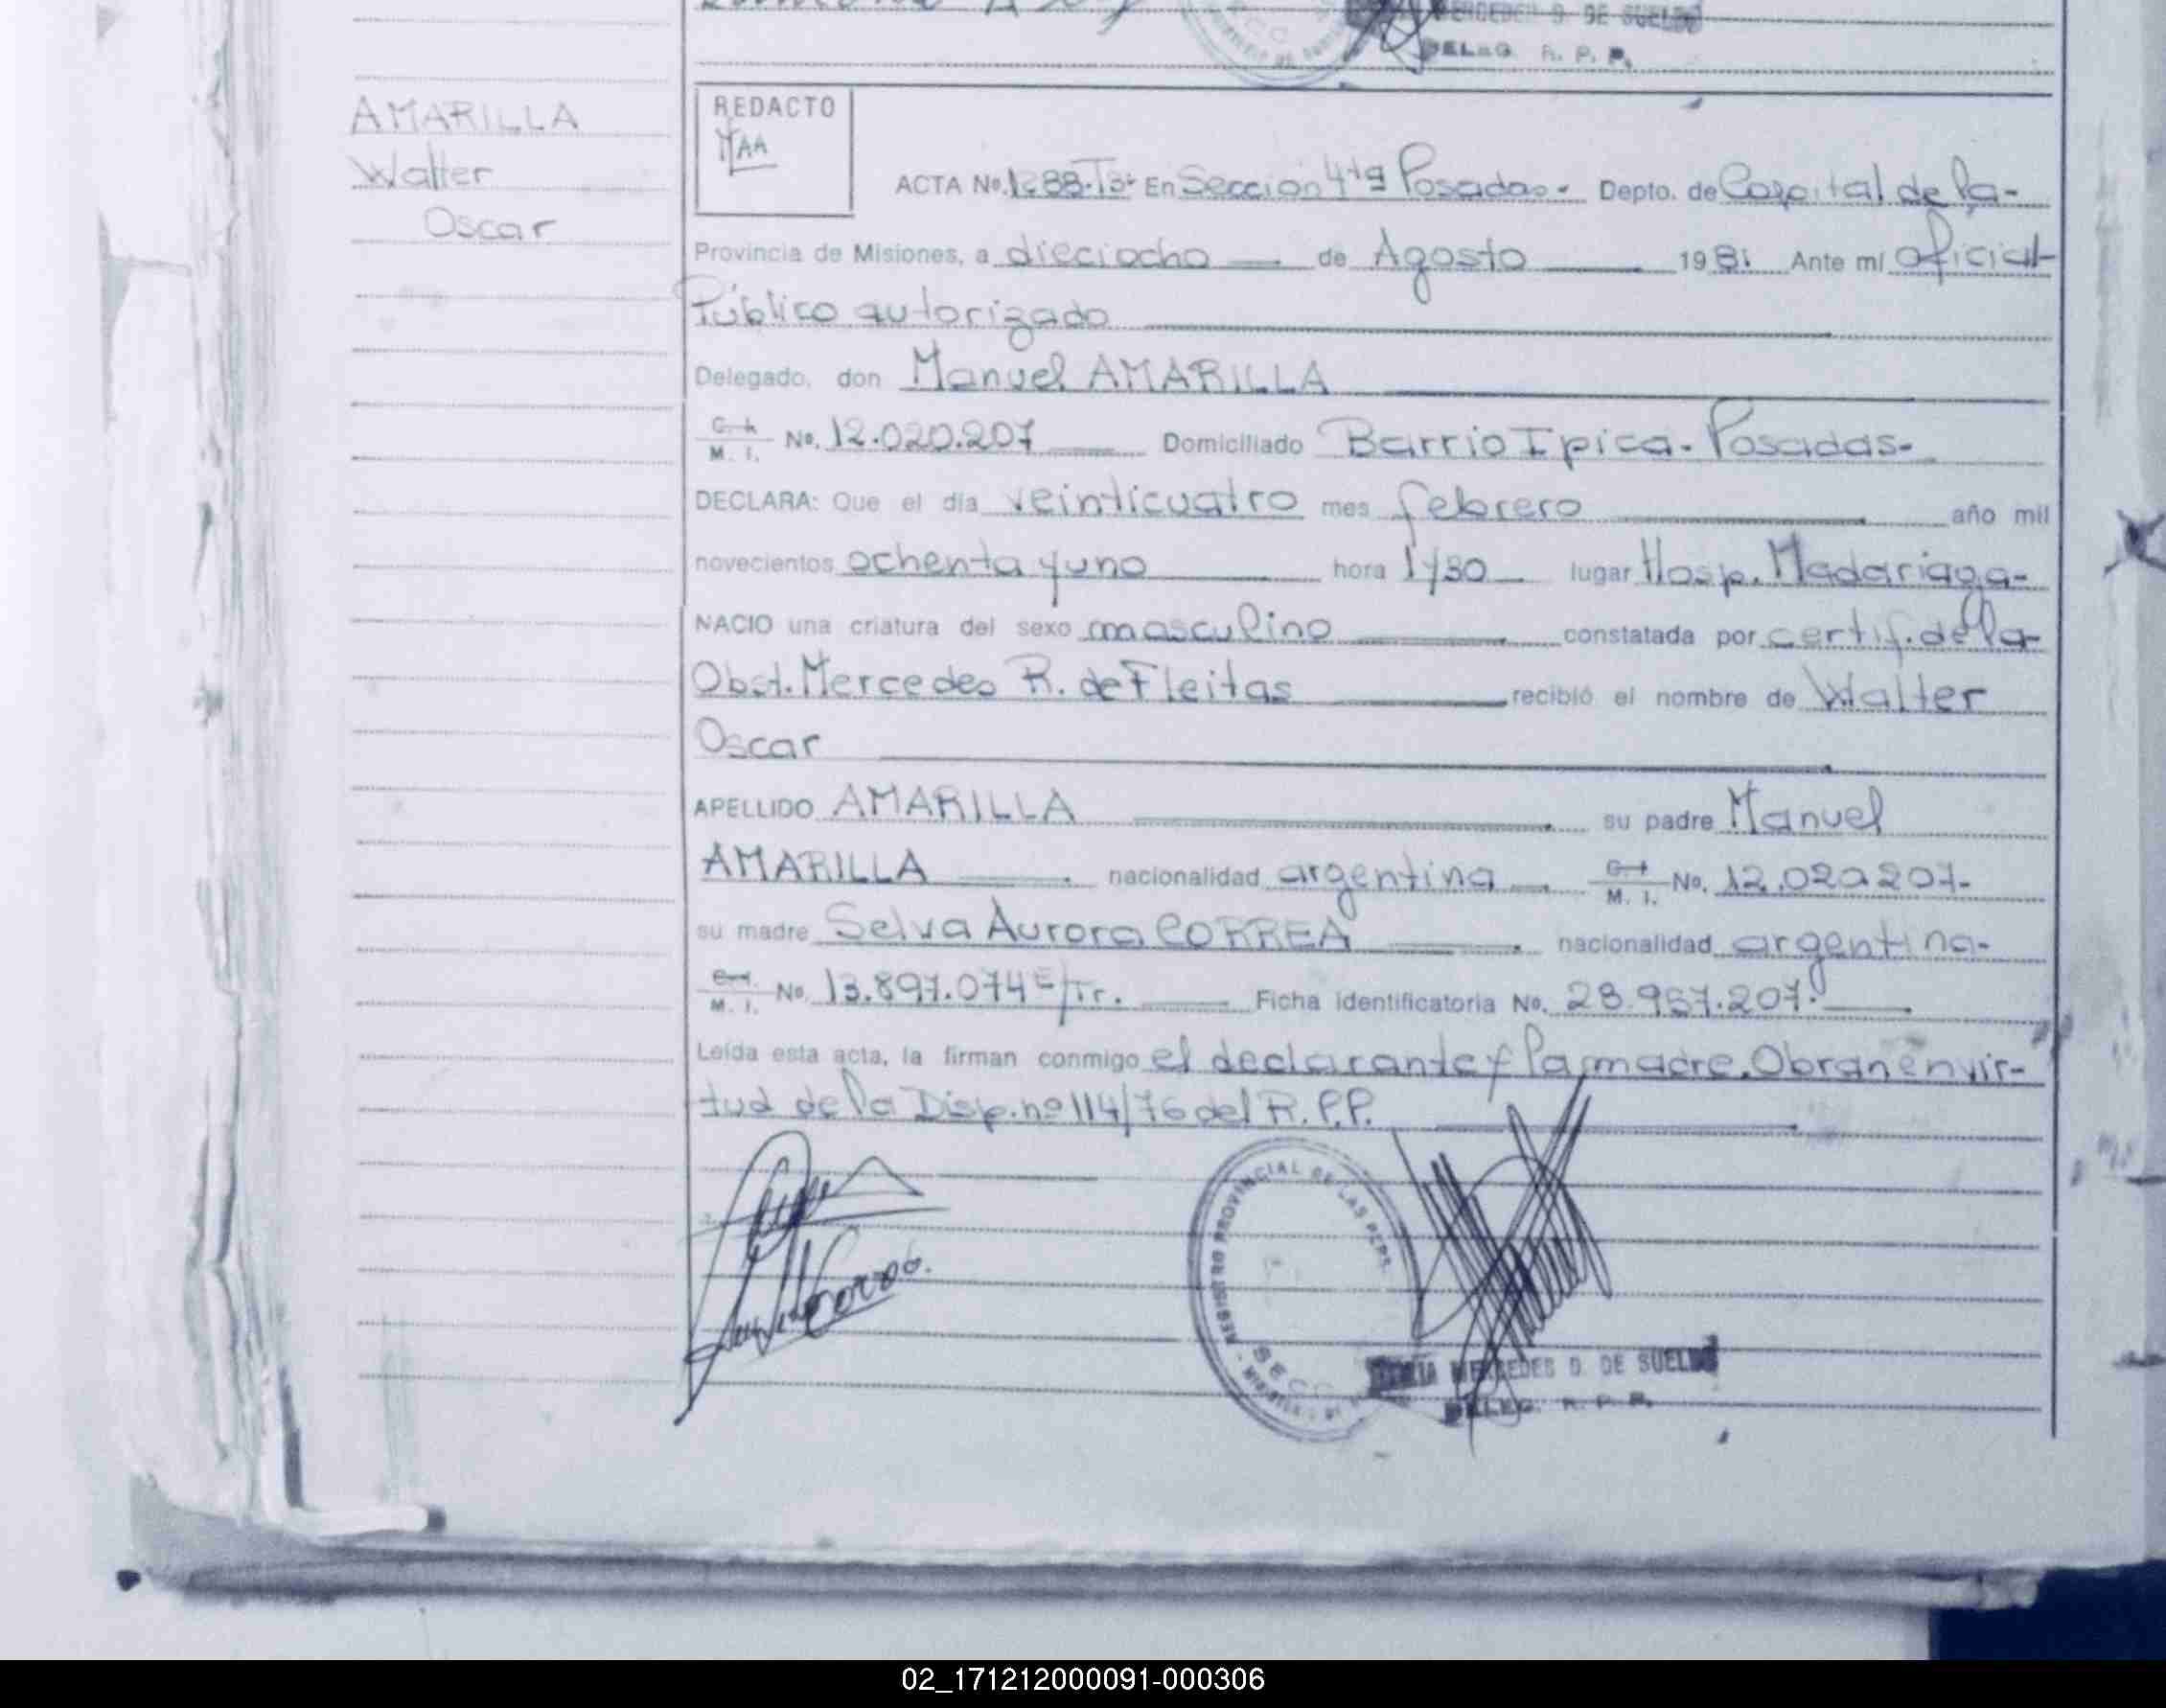 MERCEDES D. DE SUELDO
DELEG. R. P. P.
AMARILLA
Walter
Oscar
REDACTO
MAA
ACTA No. 1288-T3º En Sección 4ta Posadas.- Depto. de Capital de la-
Provincia de Misiones, a dieciocho de Agosto 1981 Ante mí oficial
Público autorizado
Delegado, don Manuel AMARILLA
M. I. No. 12.020.207 Domiciliado Barrio Ipica. Posadas-
DECLARA: Que el día veinticuatro mes febrero año mil
novecientos ochenta y uno hora 1/30 lugar Hosp. Madariaga-
NACIO una criatura del sexo masculino constatada por certif. de la-
Obst. Mercedes R. de Fleitas recibió el nombre de Walter
Oscar
APELLIDO AMARILLA su padre Manuel
AMARILLA nacionalidad argentina M. I. No. 12.020.207-
su madre Selva Aurora CORREA nacionalidad argentina-
M. I. No. 13.897.074 E/Tr. Ficha identificatoria No. 28.957.207.
Leída esta acta, la firman conmigo el declarante y la madre. Obran en vir-
tud de la Disp. nº 114/76 del R.P.P.
REGISTRO PROVINCIAL DE LAS PERS.
SECC
MERCEDES D. DE SUELDO
DELEG. R. P. P.
02_171212000091-000306